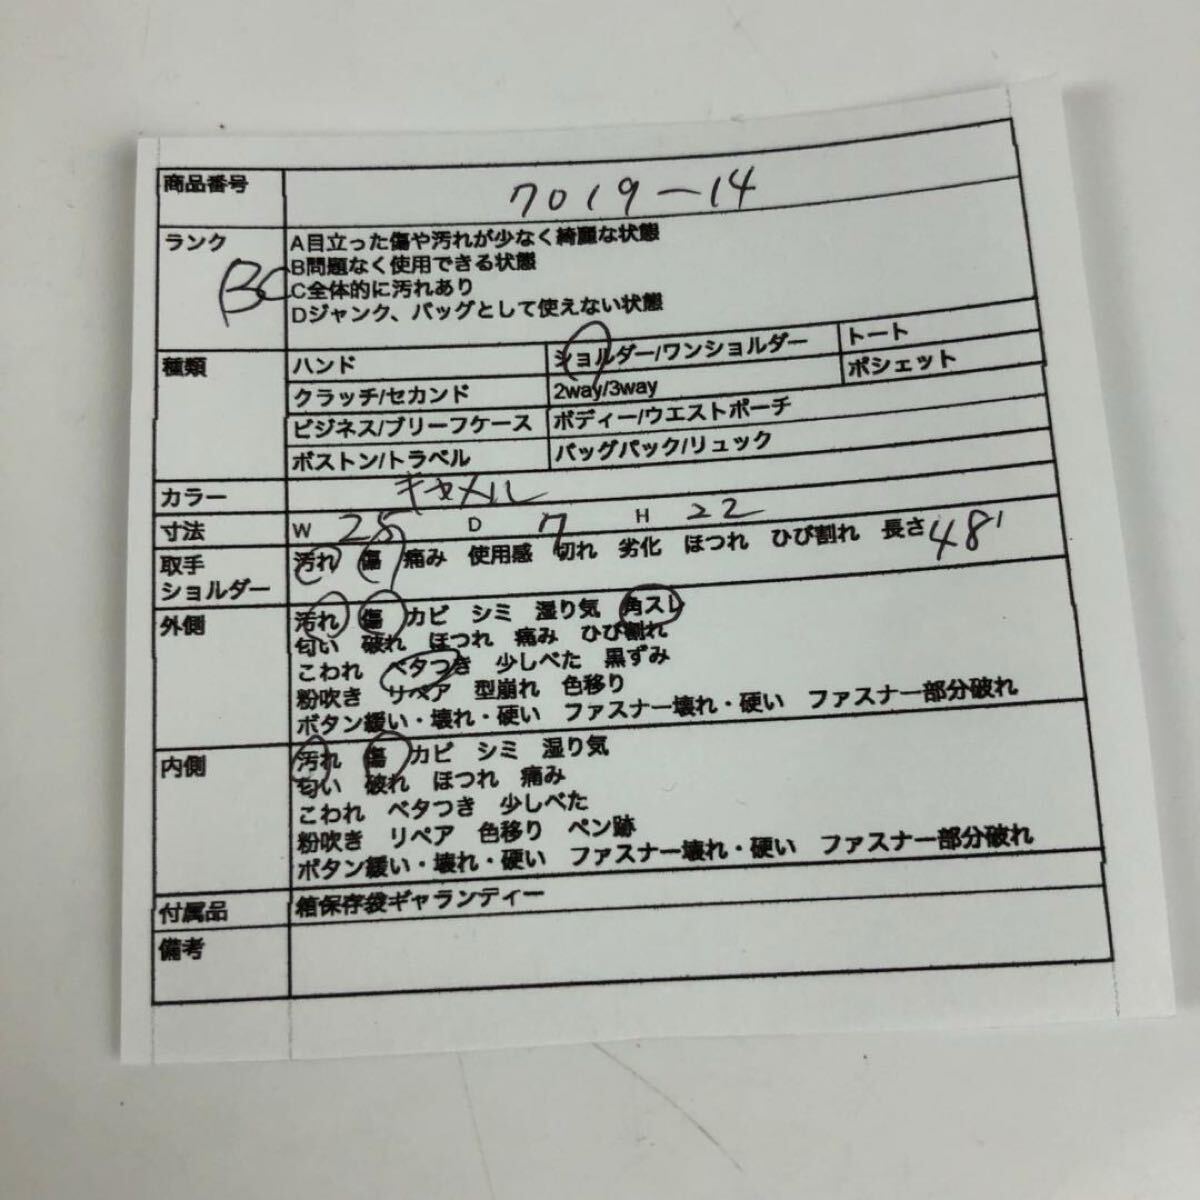 商品番号 7019-14
ランク BC
A目立った傷や汚れが少なく綺麗な状態
B問題なく使用できる状態
C全体的に汚れあり
Dジャンク、バッグとして使えない状態
種類 ハンド ショルダー/ワンショルダー トート
クラッチ/セカンド 2way/3way ポシェット
ビジネス/ブリーフケース ボディー/ウエストポーチ
ボストン/トラベル バッグパック/リュック
カラー キャメル
寸法 W 25 D 7 H 22
取手 汚れ 傷 痛み 使用感 切れ 劣化 ほつれ ひび割れ 長さ 48
ショルダー
外側 汚れ 傷 カビ シミ 湿り気 角スレ
匂い 破れ ほつれ 痛み ひび割れ
こわれ ベタつき 少しべた 黒ずみ
粉吹き リペア 型崩れ 色移り
ボタン緩い・壊れ・硬い ファスナー壊れ・硬い ファスナー部分破れ
内側 汚れ 傷 カビ シミ 湿り気
匂い 破れ ほつれ 痛み
こわれ ベタつき 少しべた
粉吹き リペア 色移り ペン跡
ボタン緩い・壊れ・硬い ファスナー壊れ・硬い ファスナー部分破れ
付属品 箱保存袋ギャランティー
備考